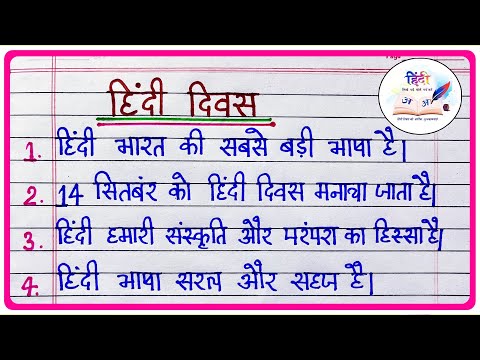 हिंदी
हिंदी दिवस
1. हिंदी भारत की सबसे बड़ी भाषा है।
2. 14 सितबंर को हिंदी दिवस मनाया जाता है।
3. हिंदी हमारी संस्कृति और परंपरा का हिस्सा है।
4. हिंदी भाषा सरल और सहज है।